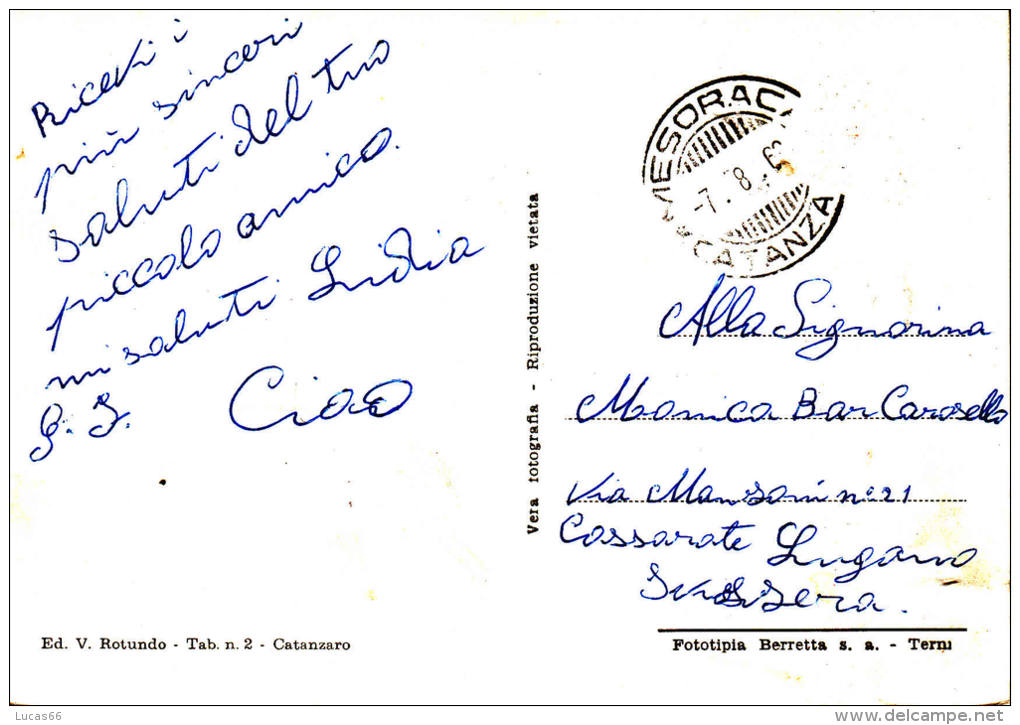 Ricevi i
più sinceri
saluti del tuo
piccolo amico.
mi saluti Lidia
Ciao
MESORACA
-7. 8. 6
CATANZA
Alla Signorina
Monica Bar Carosello
Via Manzoni n° 21
Cassarate Lugano
Svissera.
Vera fotografia - Riproduzione vietata
Ed. V. Rotundo - Tab. n. 2 - Catanzaro
Fototipia Berretta s. a. - Terni
Lucas66
www.delcampe.net